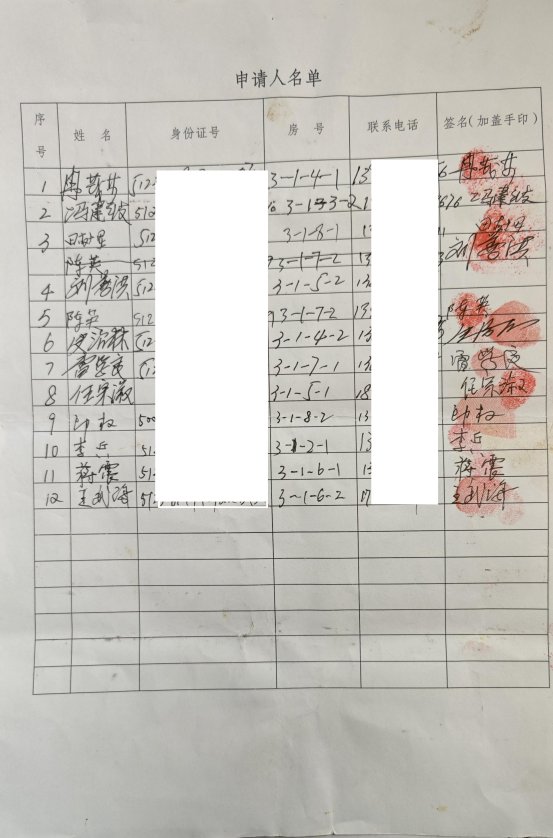 申请人名单
序号 姓名 身份证号 房号 联系电话 签名(加盖手印)
1 512 3-1-4-1 13
2 冯建 512 3-1-3-2 1 冯建
3 512 3-1-8-1 1
陈英 512 3-1-7-2 13
4 刘善洪 512 3-1-5-2 13 刘善洪
5 陈英 512 3-1-7-2 13 陈英
6 512 3-1-4-2 13
7 雷学良 512 3-1-7-1 13 雷学良
8 任宗淑 3-1-5-1 18 任宗淑
9 印权 500 3-1-8-2 13 印权
10 李兵 51 3-1-2-1 13 李兵
11 蒋霞 51 3-1-6-1 13 蒋霞
12 王武海 51 3-1-6-2 17 王武海